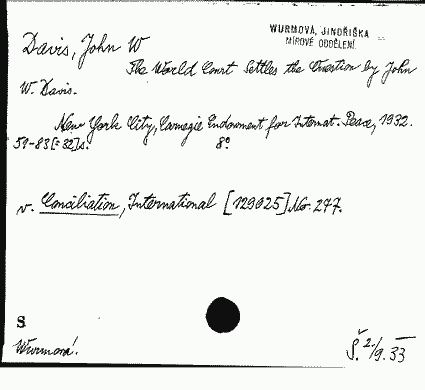 Davis, John W
WURMOVÁ, JINDŘIŠKA
MÍROVÉ ODDĚLENÍ
The World Court Settles the Question by John
W. Davis.
New York City, Carnegie Endowment for Internat. Peace, 1932.
51-83[=32]s. 8°
v. Conciliation, International [129025] No. 277.
S
Wurmová.
Š. 2./9. 33